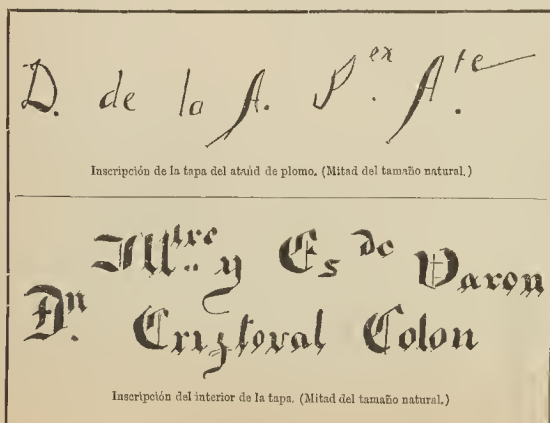 D. de la A. P.ex A.te
Inscripción de la tapa del ataúd de plomo. (Mitad del tamaño natural.)
Illtre.. y Es.do Varon
Dn. Criztoval Colon
Inscripción del interior de la tapa. (Mitad del tamaño natural.)